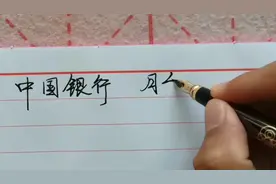 中国银行 月